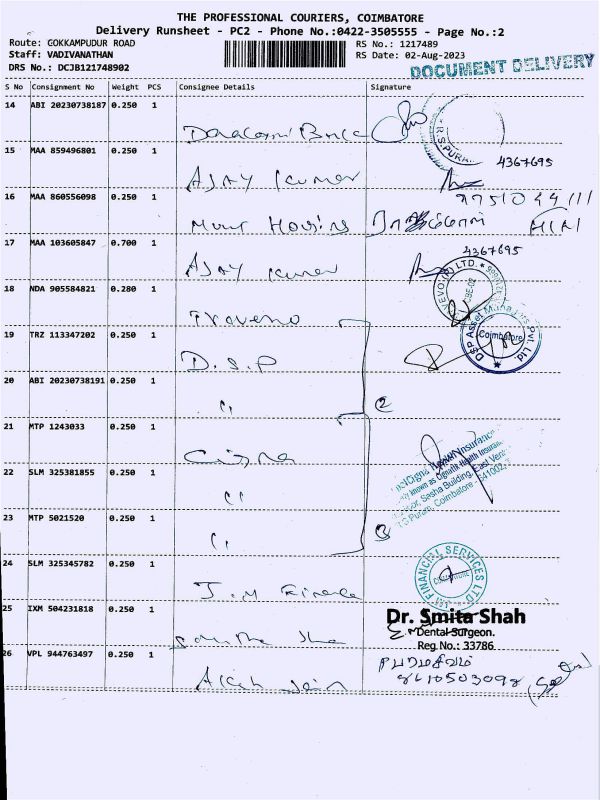 THE PROFESSIONAL COURIERS, COIMBATORE
Delivery Runsheet - PC2 - Phone No.:0422-3505555 - Page No.:2
Route: GOKKAMPUDUR ROAD
RS No.: 1217489
Staff: VADIVANATHAN
RS Date: 02-Aug-2023
DRS No.: DCJB121748902
DOCUMENT DELIVERY
S No Consignment No Weight PCS Consignee Details Signature
14 ABI 20230738187 0.250 1
R.S.PURAM
15 MAA 859496801 0.250 1
4367695
AJAY Kumar
16 MAA 860556098 0.250 1
Housing
17 MAA 103605847 0.700 1
4367695
AJAY Kumar
18 NDA 905584821 0.280 1
19 TRZ 113347202 0.250 1
D.S.P
DSP Asset Managers Pvt. Ltd.
Coimbatore
20 ABI 20230738191 0.250 1
"
2
21 MTP 1243033 0.250 1
Cigna
22 SLM 325381855 0.250 1
"
23 MTP 5021520 0.250 1
"
3
24 SLM 325345782 0.250 1
FINANCIAL SERVICES LTD
25 IXM 504231818 0.250 1
Dr. Smita Shah
Dental Surgeon.
Reg No.: 33786
26 VPL 944763497 0.250 1
8610503098
Akash Jain